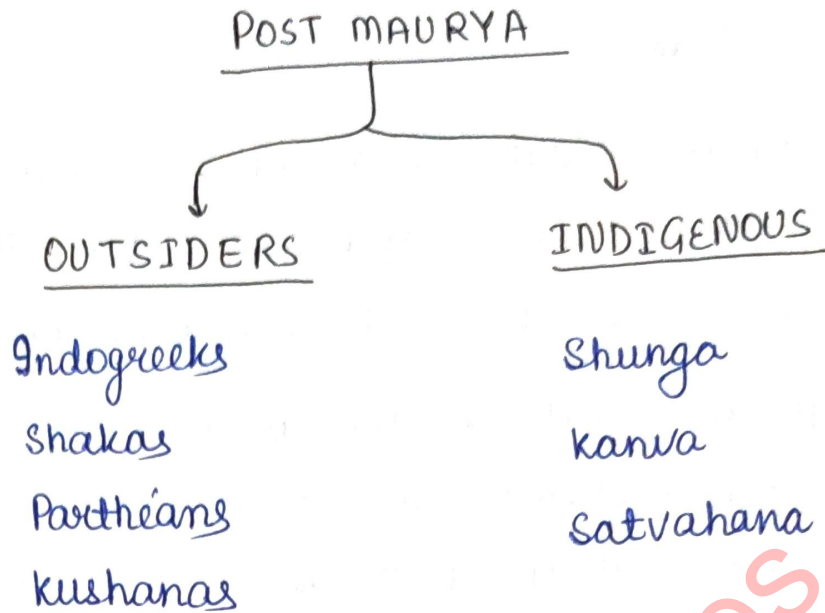 POST MAURYA
OUTSIDERS
Indogreeks
Shakas
Parthians
Kushanas
INDIGENOUS
Shunga
Kanva
Satvahana